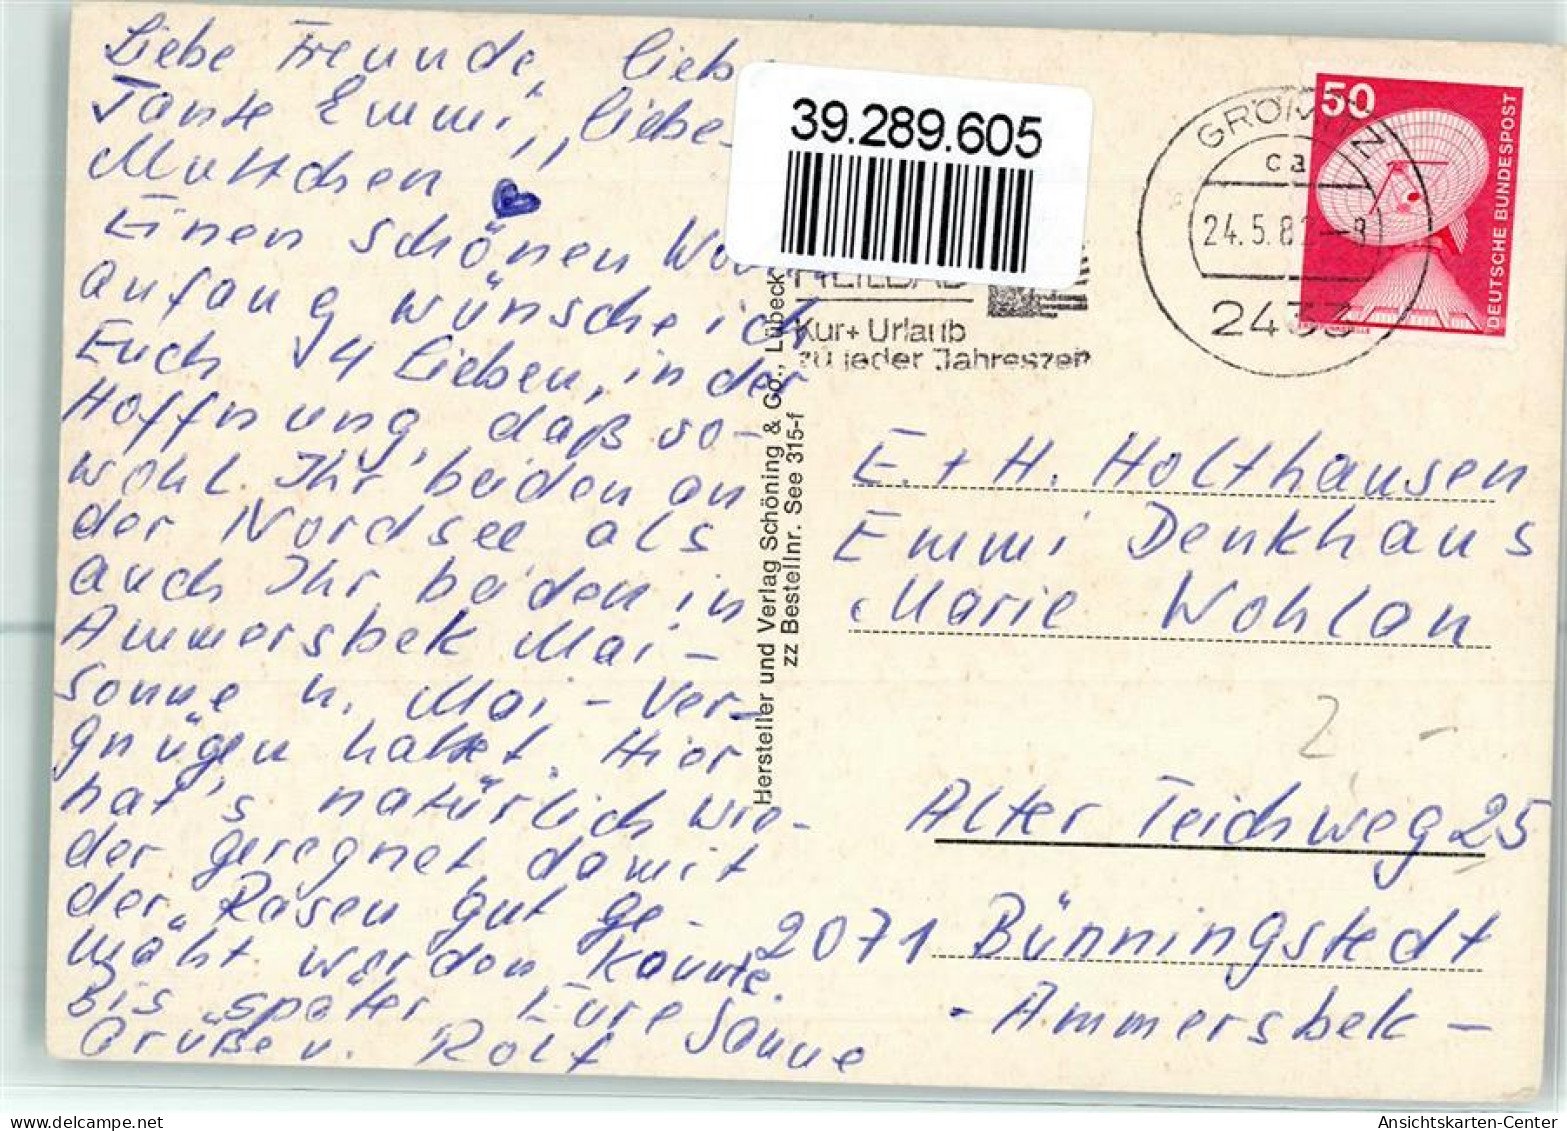 Liebe Freunde, liebe
Tante Emmi, liebe
Muttchen
Einen schönen
anfang wünsche ich
Euch 4 Lieben, in der
Hoffnung, daß so-
wohl Ihr beiden an
der Nordsee als
auch Ihr beiden in
Ammersbek Mai-
sonne u. Mai-Ver-
gnügen hattet. Hier
hat's natürlich wie-
der geregnet, damit
der Rasen gut ge-
mäht werden konnte.
Bis später Eure
Grüße u. Rolf Sonne
39.289.605
HEILBAD
Kur+Urlaub
zu jeder Jahreszeit
GRÖMITZ
ca
24.5.82-8
2433
50
DEUTSCHE BUNDESPOST
Hersteller und Verlag Schöning & Co., Lübeck
zz Bestellnr. See 315-f
E. + H. Holthausen
Emmi Denkhaus
Marie Wohlan
2 -
Alter Teichweg 25
2071 Bünningstedt
- Ammersbek -
Ansichtskarten-Center